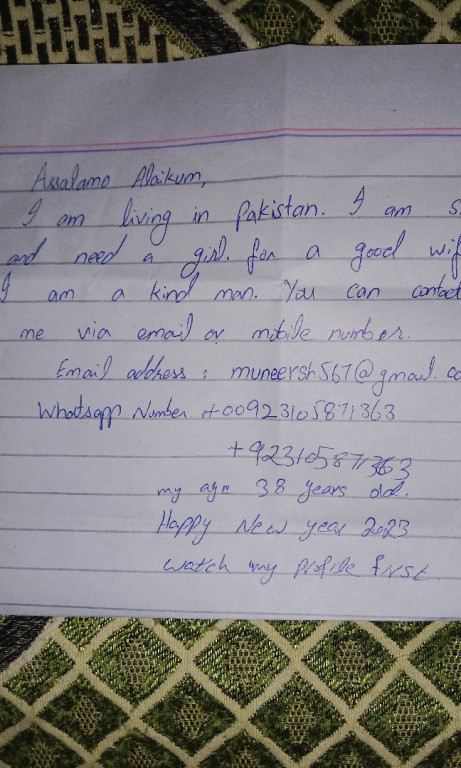 Assalamo Alaikum,
I am living in Pakistan. I am s
and need a girl. for a good wif
I am a kind man. You can contact
me via email or mobile number.
Email address : muneersh567@gmail.co
Whatsapp Number :+00923105871363
+923105871363
my age 38 years old.
Happy New year 2023
watch my profile first.